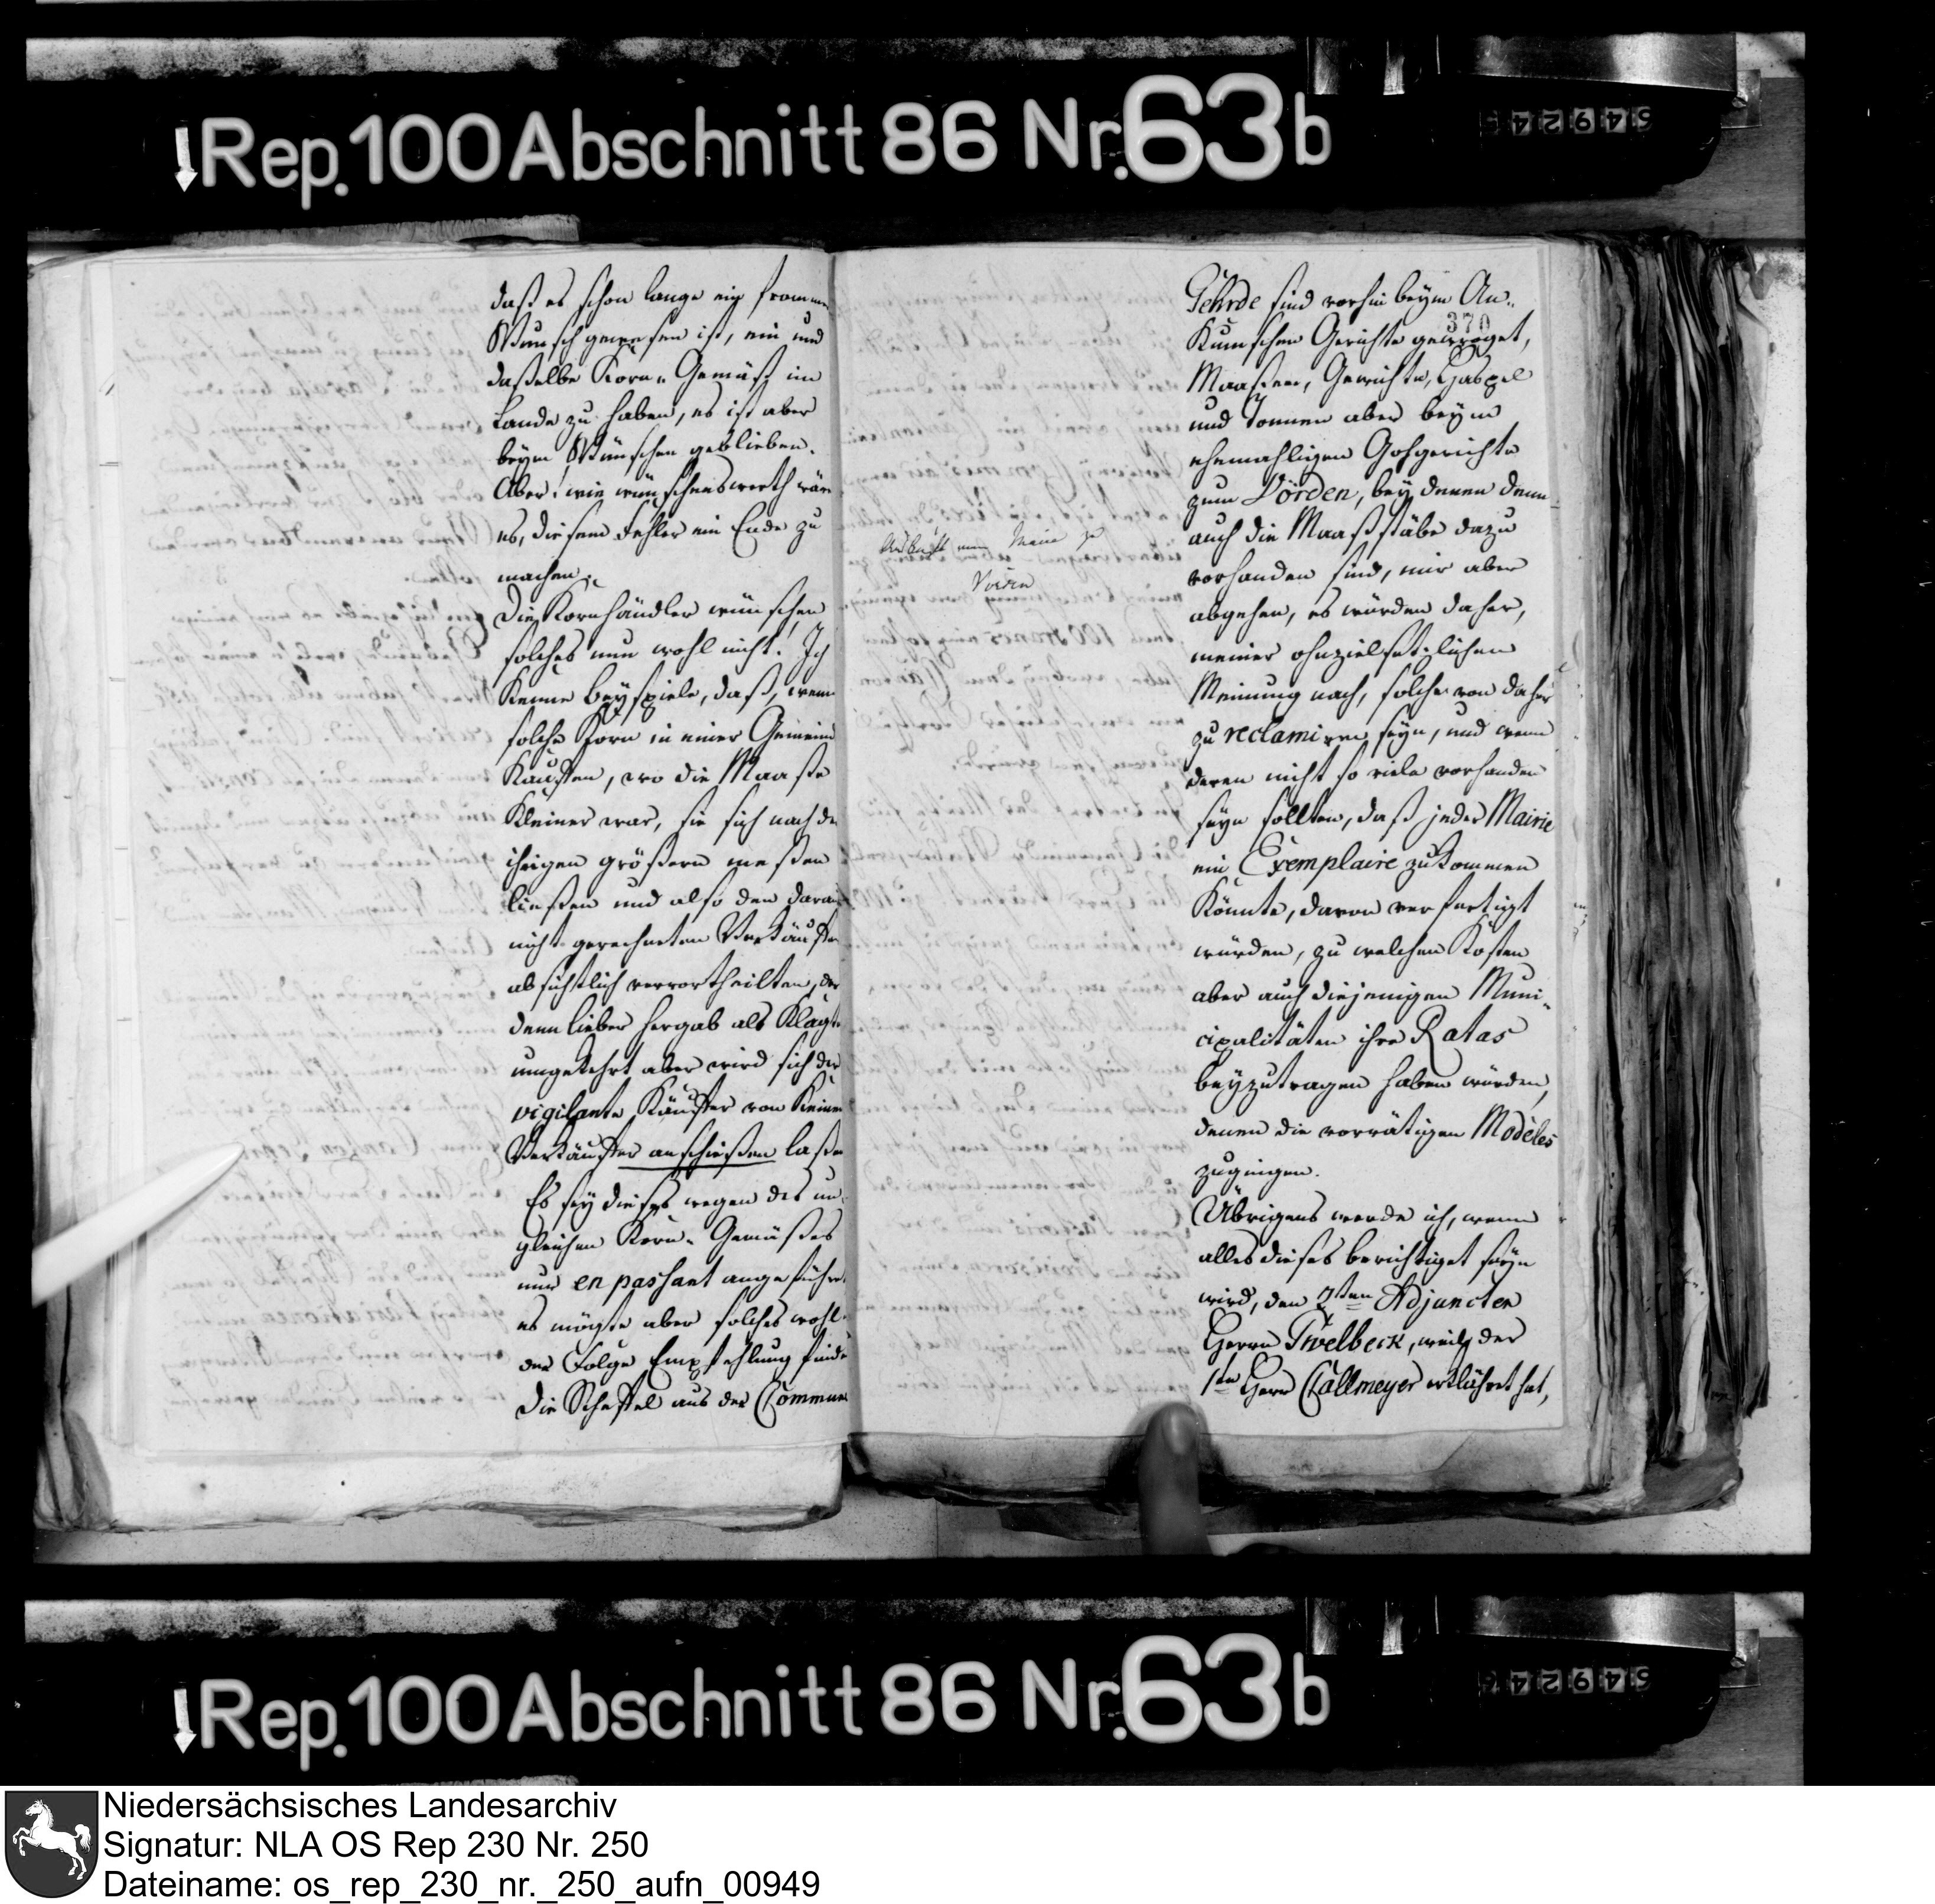 Rep. 100 Abschnitt 86 Nr. 63b
daß es schon lange ein fromme
Wunsch gewesen ist, ein und
daßelbe Korn„Gemäß im
Lande zu haben, es ist aber
beym Wünschen geblieben.
Aber! wie wünschenswerth wäre
es, diesem Fehler ein Ende zu
machen.
Die Kornhändler wünschen
solches nun wohl nicht! Ich
Kenne Beyspiele, daß, wenn
solche Korn in einer Gemeind
Kauften, wo die Maaße
Kleiner war, sie sich nach de
ihrigen größern meßen
ließen und also den darauf
nicht gerechneten Verkäufer
absichtlich vervortheilten, der
denn lieber hergab als Klagte
umgekehrt aber wird sich der
vigilante Käufer von Keinem
Verkäufer anschießen laßen
Es sey dieses wegen des un-
gleichen Korn-Gemäßes
nur en passant angeführt
es mögte aber solches wohl
der Folge Empfehlung finde
Die Scheffel aus der Commune
370
Gehrde sind vorhin beym An„
Kumschen Gerichte gewroget,
Maaßen, Gewichte, Haspel
und Tonnen aber beym
ehemahligen Gohgerichte
zum Vörden, bey denen denn
auch die Maaßstäbe dazu
vorhanden sind, mir aber
abgehen, es würden daher,
meiner ohnzielsetzlichen
Meinung nach, solche von daher
zu reclamiren seyn, und wenn
deren nicht so viele vorhanden
seyn sollten, daß jeder Mairie
ein Exemplaire zukommen
Könnte, davon verfertigt
würden, zu welchen Kosten
aber auch diejenigen Muni-
cipalitäten ihre Ratas
beyzutragen haben würden,
denen die vorrätigen Modèles
zugingen.
Übrigens werde ich, wenn
alles dieses berichtiget seyn
wird, den 2ten Adjuncten
Herrn Twelbeck, weil der
1te Herr Callmeyer erklähret hat,
Maire zu
Vörden
Rep. 100 Abschnitt 86 Nr. 63b
Niedersächsisches Landesarchiv
Signatur: NLA OS Rep 230 Nr. 250
Dateiname: os_rep_230_nr._250_aufn_00949